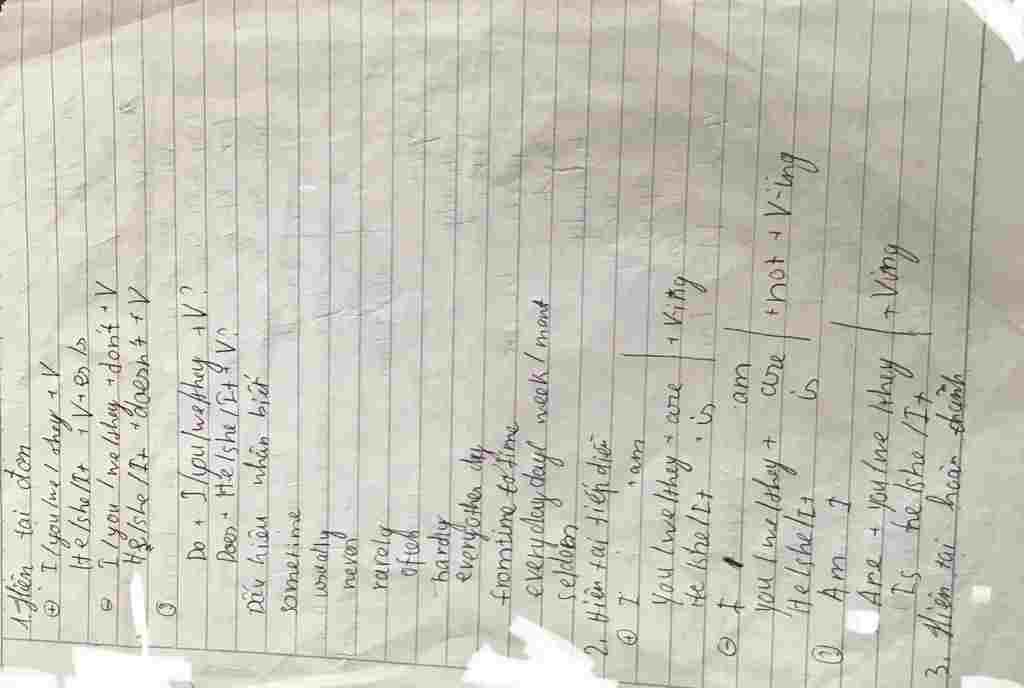 1. Hiện tại đơn
⊕ I/you/we/they + V
He/she/It + V+es/s
⊖ I/you/we/they + don't + V
He/she/It + doesn't + V
? Do + I/you/we/they + V?
Does + He/she/It + V?
Dấu hiệu nhận biết
sometime
usually
never
rarely
often
hardy
everyother day
fromtime to time
every day day/ week/ mont
seldom
2. Hiện tại tiếp diễn
⊕ I + am
You/we/they + are + V-ing
He/she/It + is
⊖ I am
you/we/they + are + not + V-ing
He/she/It is
? Am I
Are + you/we/they + Ving
Is he/she/It
3. Hiện tại hoàn thành